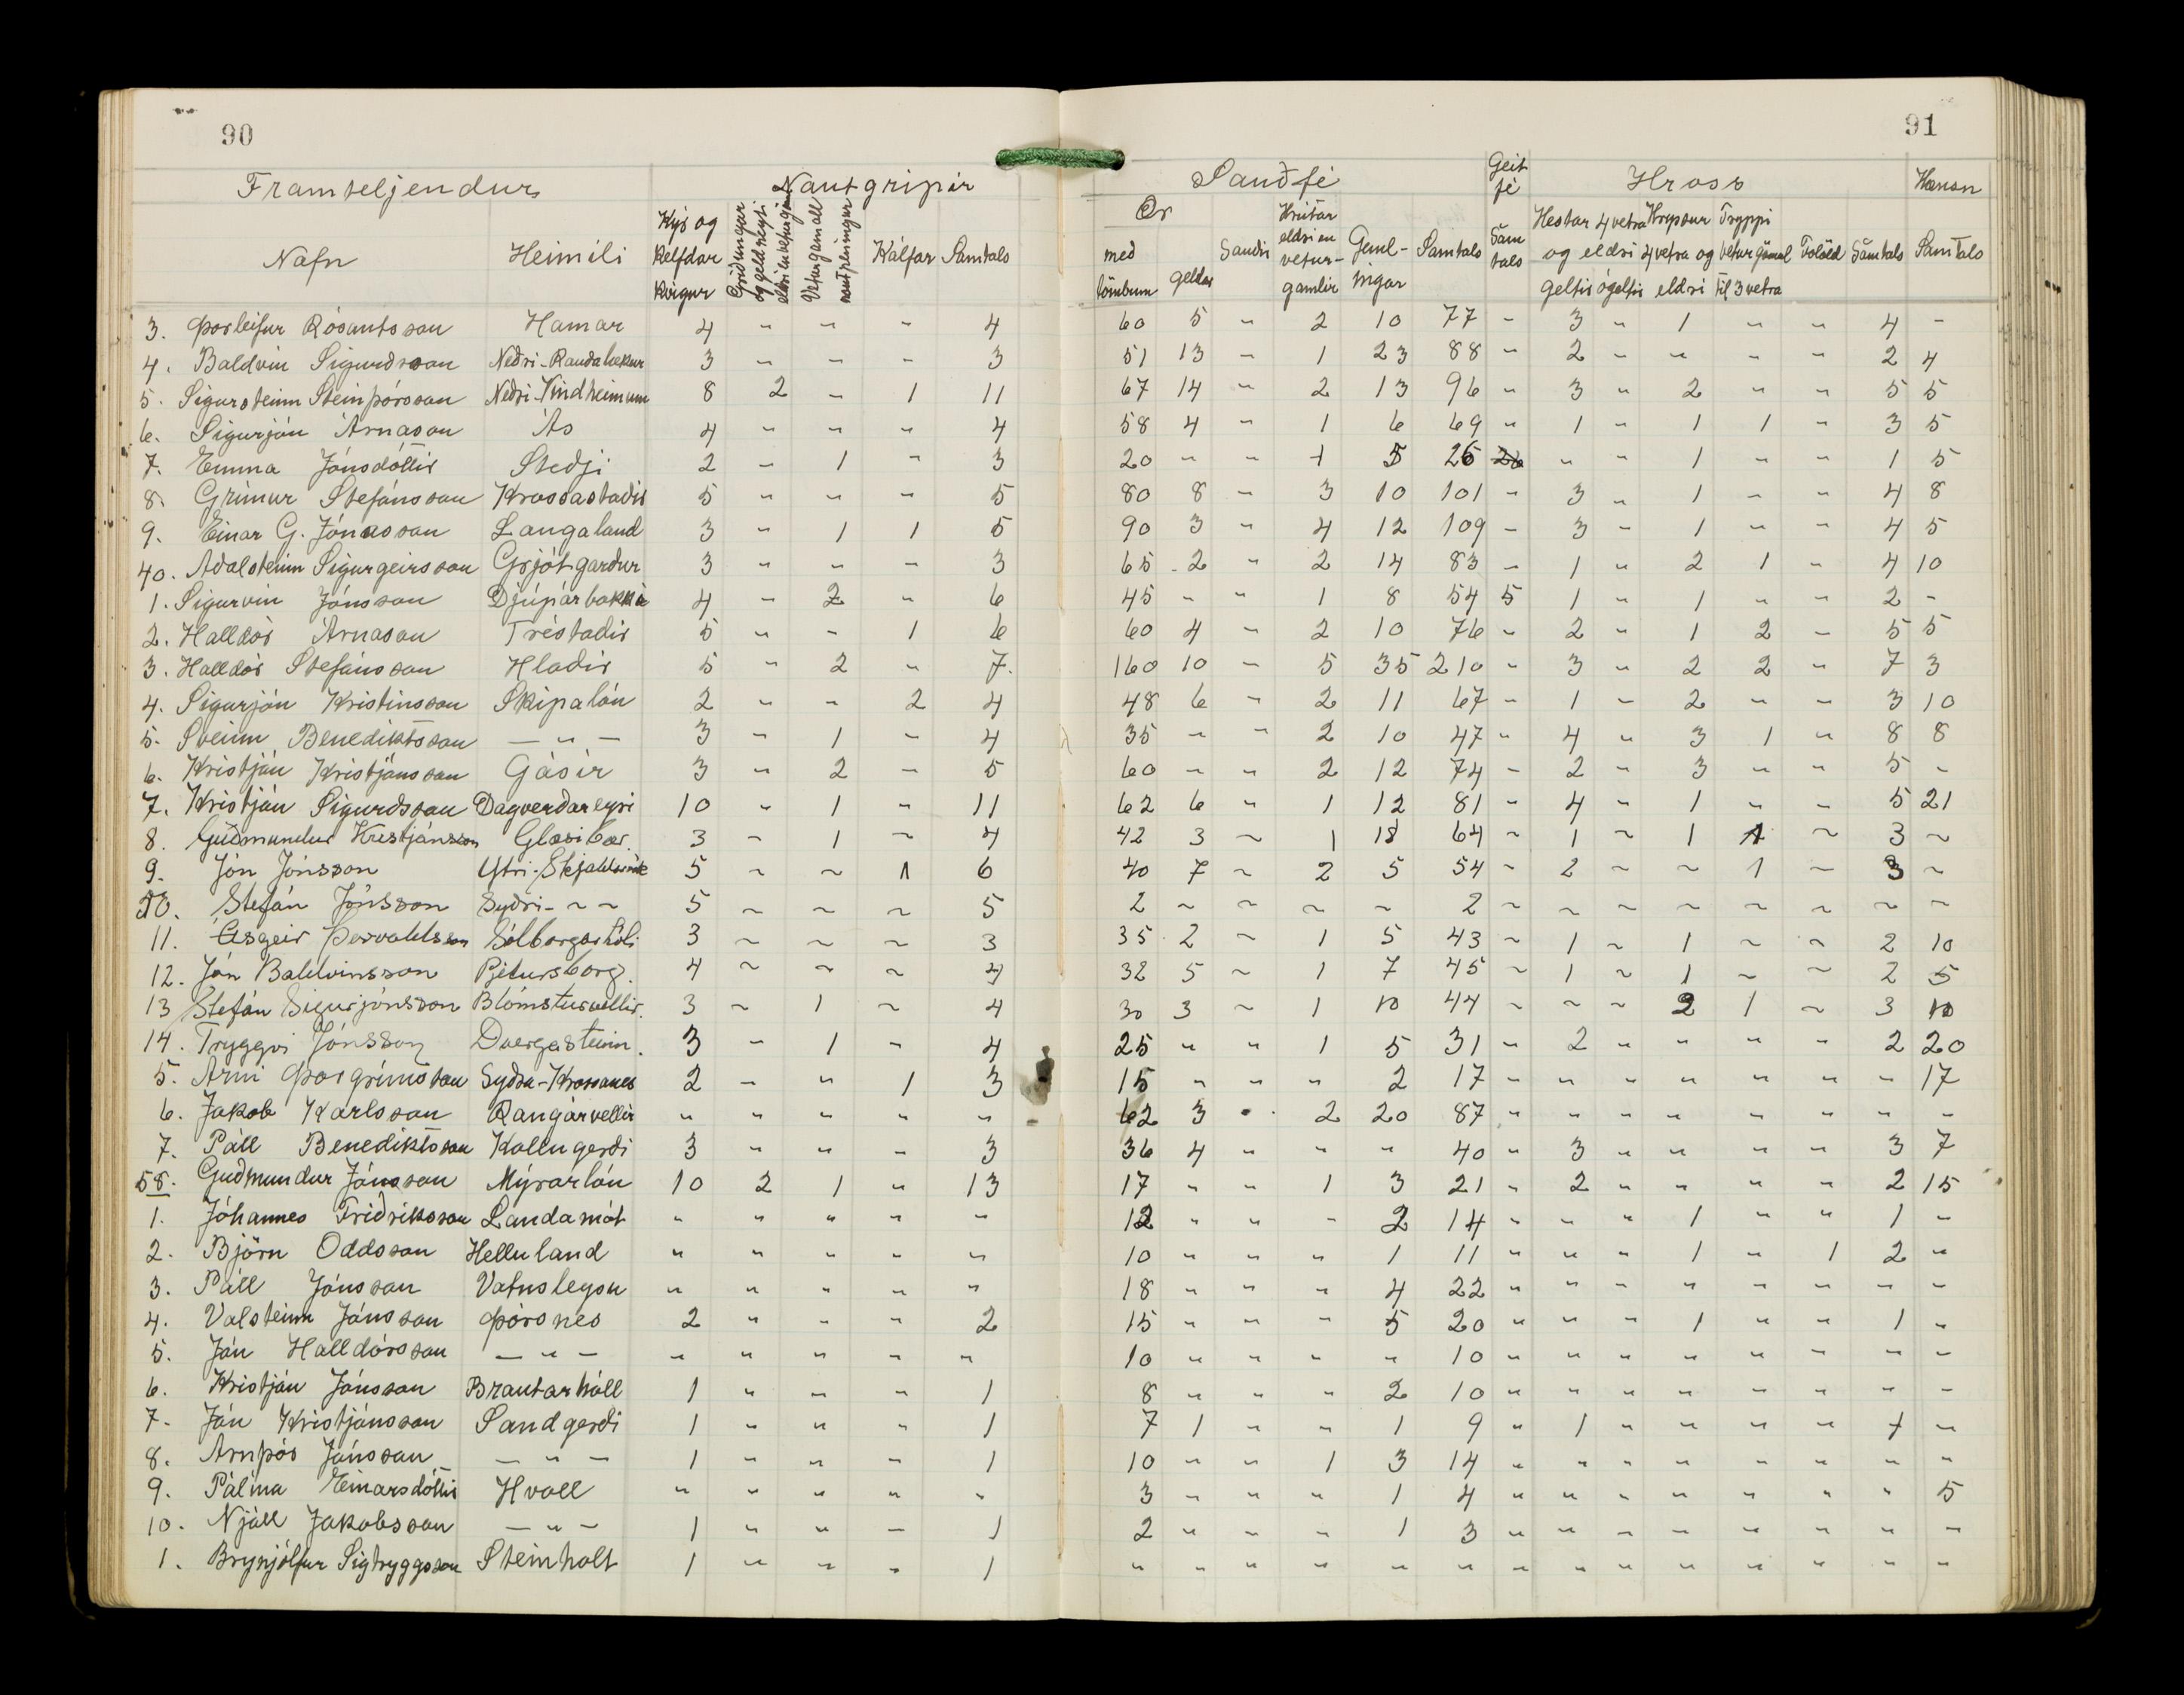 90
91
Framteljendur Nautgripir Sauðfé Geitfé Hross Hænsn
Nafn Heimili Kýr og kelfdar kvígur Griðungar og geldneyti eldri en veturgömul Veturgamall nautpeningur Kálfar Samtals Ær með lömbum geldar Sauðir Hrútar eldri en veturgamlir Geml-ingar Samtals Samtals Hestar 4 vetra og eldri geltir ógeltir Hryssur 4 vetra og eldri Tryppi veturgömul til 3 vetra Folöld Samtals Samtals
3. Þorleifur Rósantsson Hamar 4 " " " 4 60 5 " 2 10 77 - 3 " 1 " " 4 -
4. Baldvin Sigurðsson Neðri-Rauðalækur 3 - - - 3 51 13 - 1 23 88 " 2 - " - " 2 4
5. Sigursteinn Steinþórsson Neðri-Vindheimum 8 2 - 1 11 67 14 " 2 13 96 " 3 " 2 " " 5 5
6. Sigurjón Árnason Ás 4 " " " 4 58 4 - 1 6 69 " 1 " 1 1 - 3 5
7. Emma Jónsdóttir Steðji 2 - 1 " 3 20 " " 1 5 26 26 " " 1 " " 1 5
8. Grímur Stefánsson Krossastaðir 5 " " " 5 80 8 - 3 10 101 - 3 " 1 - " 4 8
9. Einar G. Jónasson Langaland 3 " 1 1 5 90 3 " 4 12 109 - 3 - 1 " " 4 5
40. Aðalsteinn Sigurgeirsson Grjótgarður 3 " " " 3 65 2 " 2 14 83 - 1 " 2 1 - 4 10
1. Sigurvin Jónsson Djúpárbakki 4 - 2 " 6 45 - " 1 8 54 5 1 " 1 " " 2 -
2. Halldór Árnason Tréstaðir 5 " - 1 6 60 4 - 2 10 76 " 2 " 1 2 - 5 5
3. Halldór Stefánsson Hlaðir 5 " 2 " 7. 160 10 - 5 35 210 " 3 " 2 2 " 7 3
4. Sigurjón Kristinsson Skipalón 2 " - 2 4 48 6 - 2 11 67 - 1 - 2 - - 3 10
5. Sveinn Benediktsson — " — 3 - 1 - 4 35 - " 2 10 47 " 4 " 3 1 " 8 8
6. Kristján Kristjánsson Gásir 3 " 2 - 5 60 - " 2 12 74 - 2 " 3 " " 5 -
7. Kristján Sigurðsson Dagverðareyri 10 " 1 " 11 62 6 " 1 12 81 " 4 " 1 " " 5 21
8. Guðmundur Kristjánsson Glæsibær. 3 ~ 1 ~ 4 42 3 ~ 1 18 64 ~ 1 ~ 1 1 ~ 3 ~
9. Jón Jónsson Ytri-Skjaldarvík 5 ~ ~ 1 6 40 7 ~ 2 5 54 ~ 2 ~ ~ 1 ~ 3 ~
10. Stefán Jónsson Syðri- ~ ~ 5 ~ ~ ~ 5 2 ~ ~ ~ ~ 2 ~ ~ ~ ~ ~ ~ ~ ~
11. Ásgeir Þorvaldsson Sólborgarhóli 3 ~ ~ ~ 3 35 2 ~ 1 5 43 ~ 1 ~ 1 ~ ~ 2 10
12. Jón Baldvinsson Pjetursborg. 4 ~ ~ ~ 4 32 5 ~ 1 7 45 ~ 1 ~ 1 ~ ~ 2 5
13 Stefán Sigurjónsson Blómsturvellir. 3 ~ 1 ~ 4 30 3 ~ 1 10 44 ~ ~ ~ 2 1 ~ 3 10
14. Tryggvi Jónsson Dvergasteinn. 3 - 1 - 4 25 " " 1 5 31 - 2 " " " " 2 20
5. Árni Þorgrímsson Syðra-Krossanes 2 - " 1 3 15 " " " 2 17 - " " " " " - 17
6. Jakob Karlsson Rangárvellir " " " " " 62 3 " 2 20 87 " " " " " " " "
7. Páll Benediktsson Kollugerði 3 " " - 3 36 4 " " - 40 " 3 " " " " 3 7
58. Guðmundur Jónsson Mýrarlón 10 2 1 " 13 17 " " 1 3 21 " 2 " " " " 2 15
1. Jóhannes Friðriksson Landamót " " " " " 12 " " - 2 14 " " " 1 " " 1 -
2. Björn Oddsson Helluland " " " " " 10 " " " 1 11 " " " 1 " 1 2 "
3. Páll Jónsson Vatnsleysu " " " " " 18 " " " 4 22 " " " " " " " -
4. Valsteinn Jónsson Þórsnes 2 " - - 2 15 " " " 5 20 " " - 1 " " 1 "
5. Jón Halldórsson — " — " " " " " 10 " " " " 10 " " " " " " " -
6. Kristján Jónsson Brautarhóll 1 " " " 1 8 " " " 2 10 " " " " " " " -
7. Jón Kristjánsson Sandgerði 1 " " " 1 7 1 " " 1 9 " 1 " " " " 1 -
8. Arnþór Jónsson — " — 1 " " - 1 10 " " 1 3 14 " " " " " " " "
9. Pálína Einarsdóttir Hvoll " " " " " 3 " " " 1 4 " " " " " " " 5
10. Njáll Jakobsson — " — 1 " " - 1 2 " " " 1 3 " " - " " " " -
1. Brynjólfur Sigtryggsson Steinholt 1 " " " 1 " " " " " " " " " " " " " "